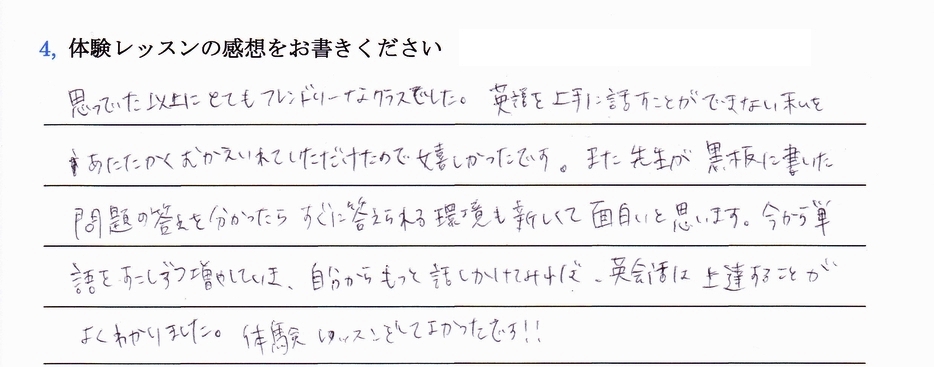 4, 体験レッスンの感想をお書きください
思っていた以上にとてもフレンドリーなクラスでした。 英語を上手に話すことができない私を
あたたかくむかえいれていただけたので嬉しかったです。また先生が黒板に書いた
問題の答えを分かったらすぐに答えられる環境も新しくて面白いと思います。今から単
語をすこしずつ増やしていき、自分からもっと話しかけてみれば、英会話は上達することが
よくわかりました。体験レッスンをしてよかったです!!